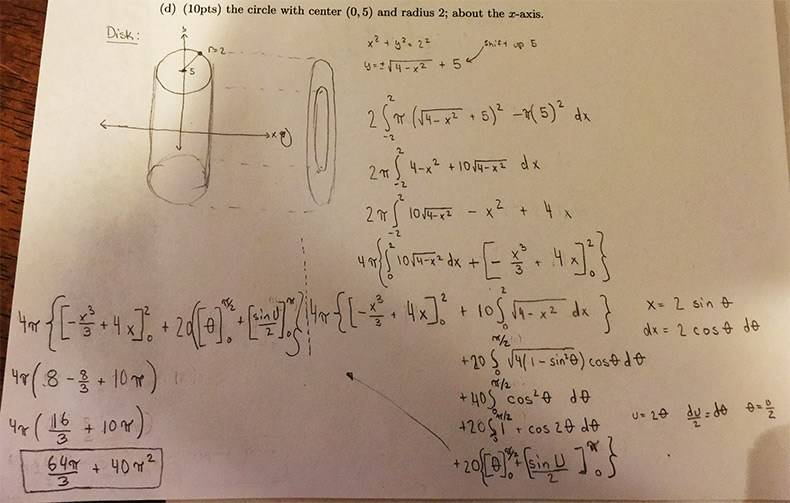 (d) (10pts) the circle with center (0, 5) and radius 2; about the x-axis.
Disk:
r=2
5
x
x² + y² = 2²
shift up 5
y = ±√(4-x²) + 5
2 ∫₋₂² π (√(4-x²) + 5)² - π(5)² dx
2π ∫₋₂² 4-x² + 10√(4-x²) dx
2π ∫₋₂² 10√(4-x²) - x² + 4 x
4π { ∫₀² 10√(4-x²) dx + [ - x³/3 + 4x ]₀² }
4π { [ - x³/3 + 4x ]₀² + 10 ∫₀² √(4-x²) dx }
x = 2 sin θ
dx = 2 cos θ dθ
+20 ∫₀^(π/2) √(4(1-sin²θ)) cosθ dθ
+40 ∫₀^(π/2) cos²θ dθ
+20 ∫₀^(π/2) 1 + cos 2θ dθ
U = 2θ du/2 = dθ θ = U/2
+20 ( [θ]₀^(π/2) + [ sin U/2 ]₀^π }
4π { [ - x³/3 + 4x ]₀² + 20 ( [θ]₀^(π/2) + [ sin U/2 ]₀^π }
4π ( 8 - 8/3 + 10π )
4π ( 16/3 + 10π )
64π/3 + 40π²